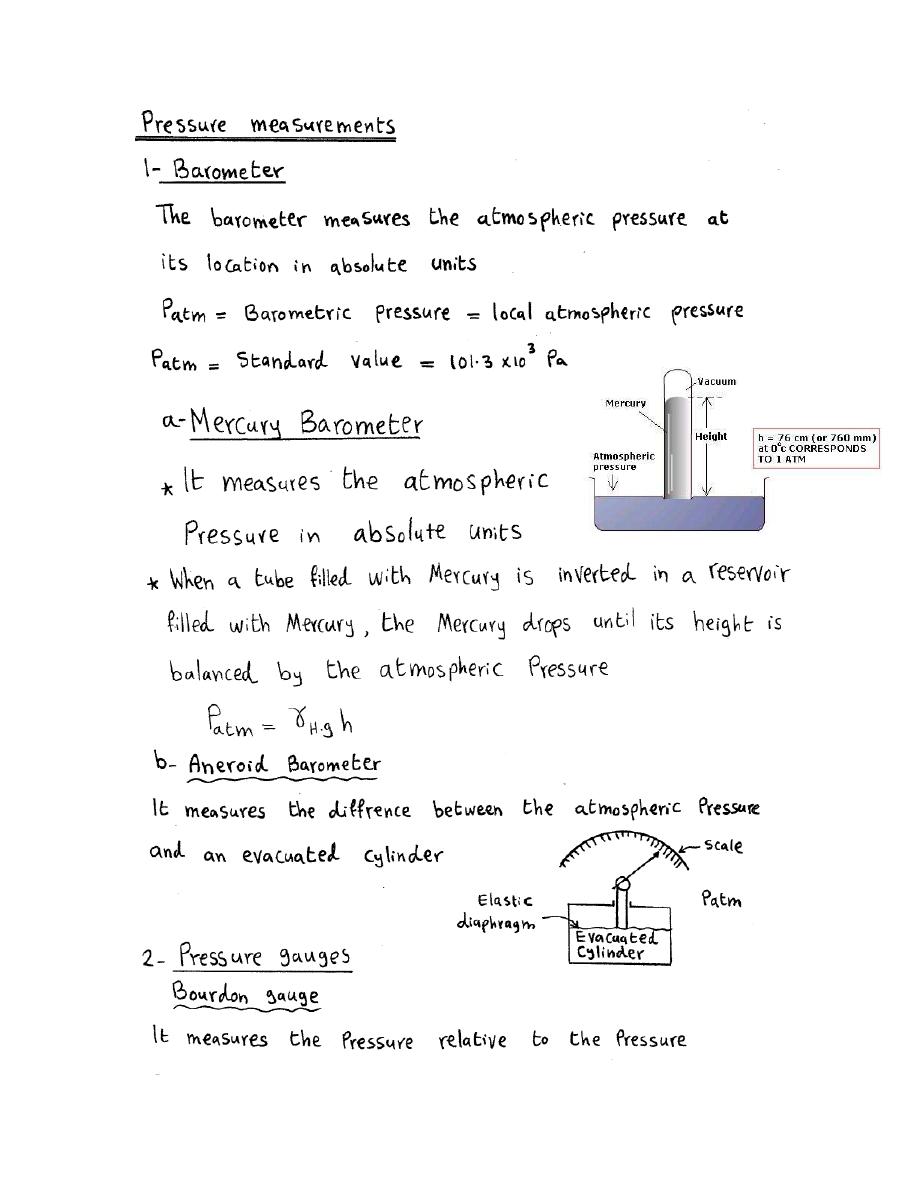 Pressure measurements
1- Barometer
The barometer measures the atmospheric pressure at
its location in absolute units
Patm = Barometric pressure = local atmospheric pressure
Patm = Standard value = 101.3 x10³ Pa
a- Mercury Barometer
Vacuum
Mercury
Height
Atmospheric
pressure
h = 76 cm (or 760 mm)
at 0°c CORRESPONDS
TO 1 ATM
* It measures the atmospheric
Pressure in absolute units
* When a tube filled with Mercury is inverted in a reservoir
filled with Mercury, the Mercury drops until its height is
balanced by the atmospheric Pressure
Patm = γH.g h
b- Aneroid Barometer
It measures the diffrence between the atmospheric Pressure
and an evacuated cylinder
Scale
Elastic
diaphragm
Patm
Evacuated
Cylinder
2- Pressure gauges
Bourdon gauge
It measures the Pressure relative to the Pressure